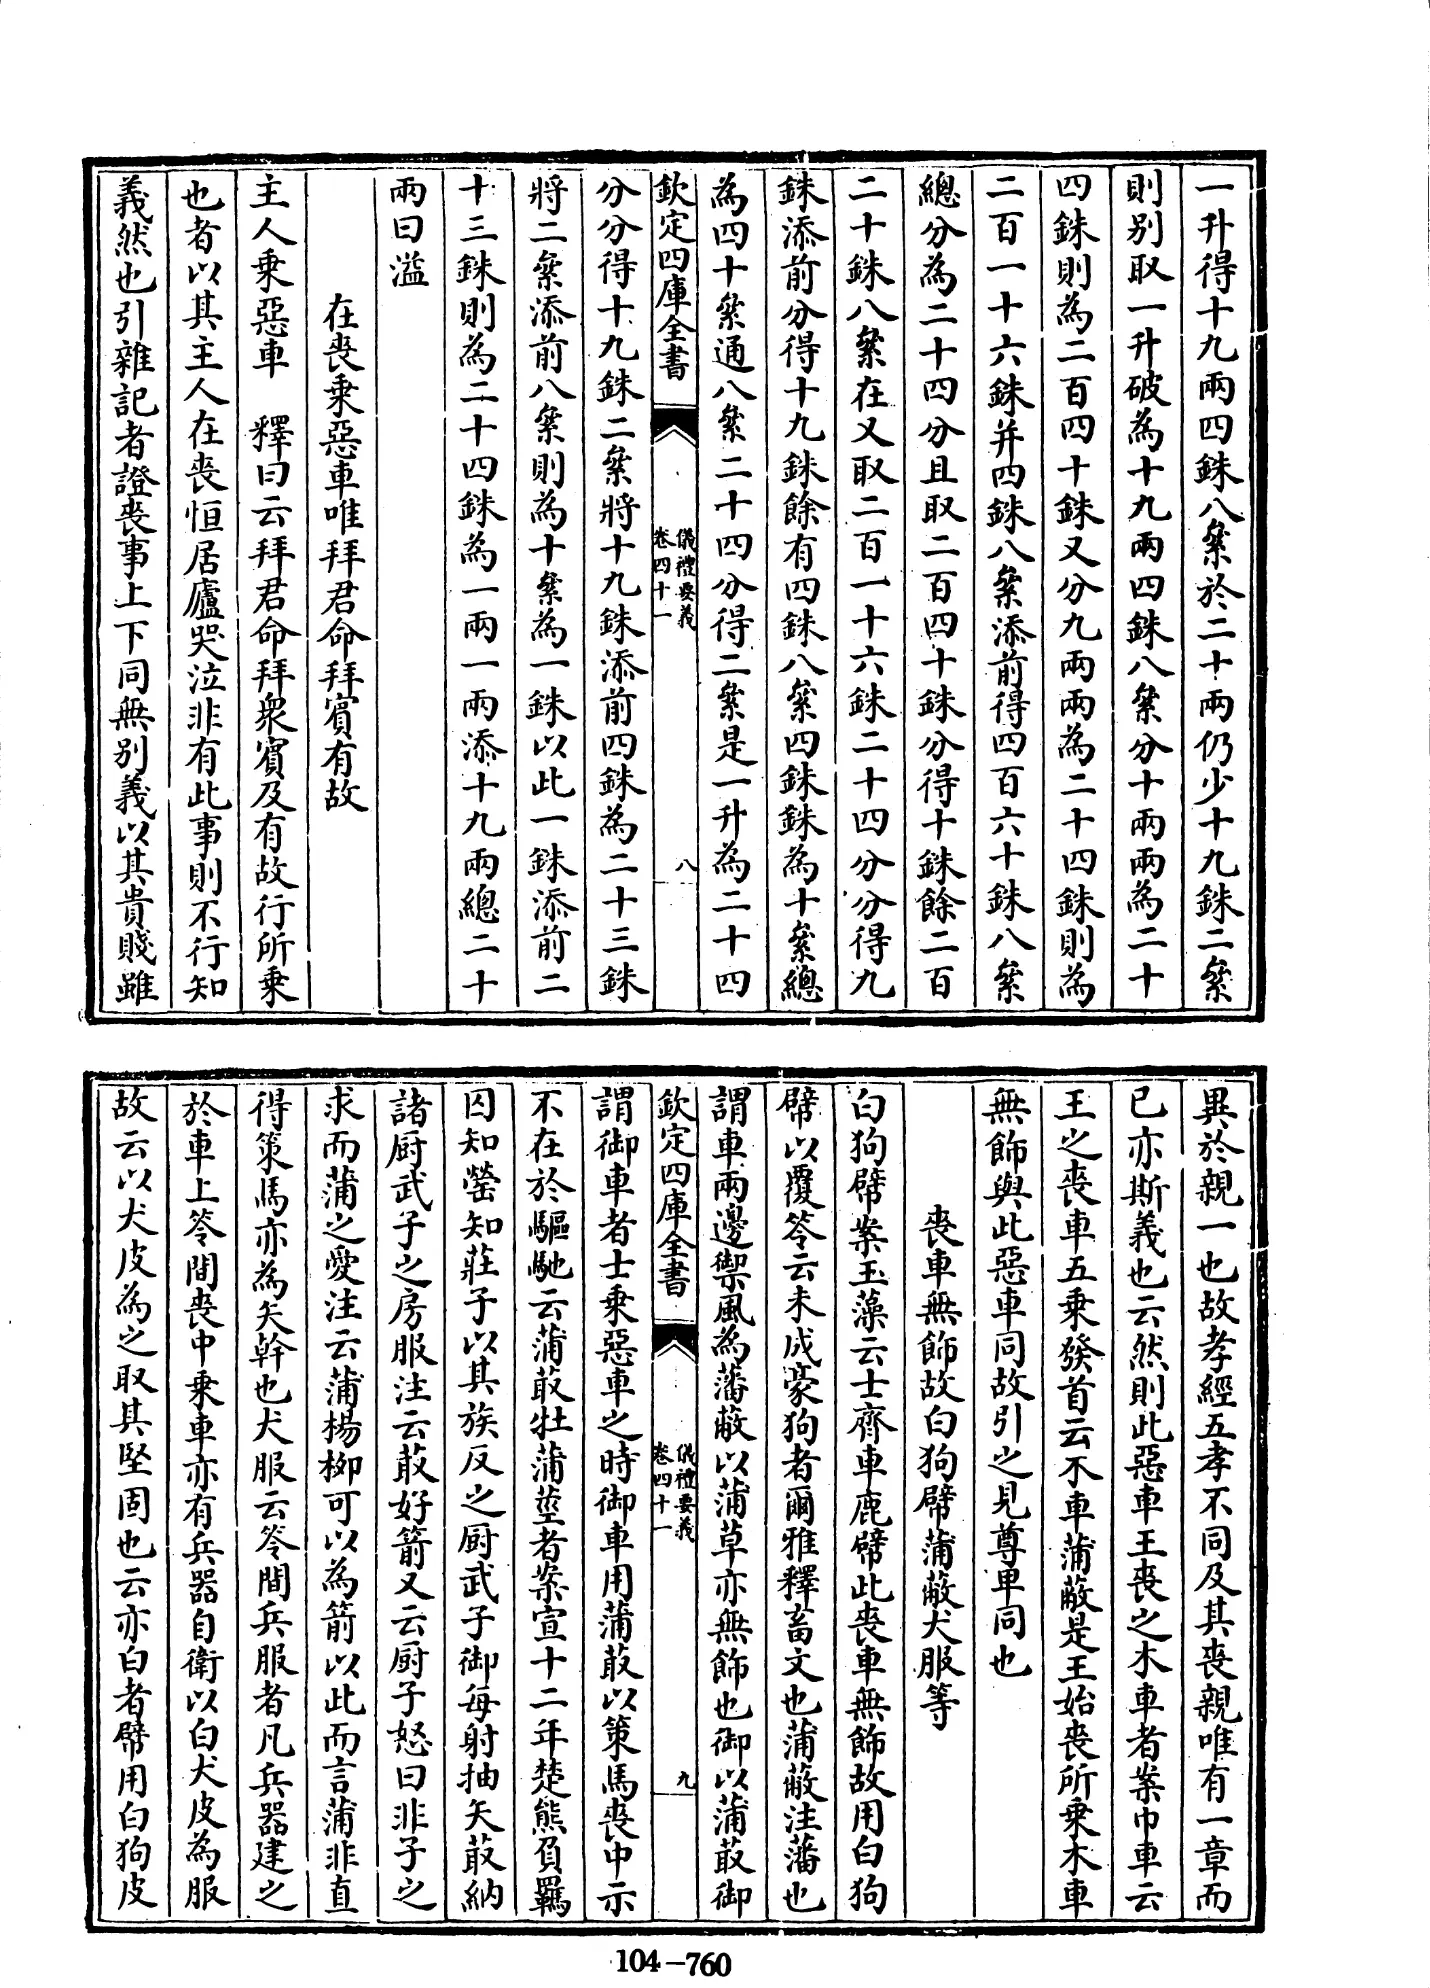 一升得十九兩四銖八絫於二十兩仍少十九銖二絫
則别取一升破為十九兩四銖八絫分十兩兩為二十
四銖則為二百四十銖又分九兩兩為二十四銖則為
二百一十六銖并四銖八絫添前得四百六十銖八絫
總分為二十四分且取二百四十銖分得十銖餘二百
二十銖八絫在又取二百一十六銖二十四分分得九
銖添前分得十九銖餘有四銖八絫四銖銖為十絫總
為四十絫通八絫二十四分得二絫是一升為二十四
欽定四庫全書
儀禮要義
卷四十一
八
分分得十九銖二絫將十九銖添前四銖為二十三銖
將二絫添前八絫則為十絫為一銖以此一銖添前二
十三銖則為二十四銖為一兩一兩添十九兩總二十
兩曰溢
在喪乘惡車唯拜君命拜賓有故
主人乘惡車 釋曰云拜君命拜衆賓及有故行所乘
也者以其主人在喪恒居廬哭泣非有此事則不行知
義然也引雜記者證喪事上下同無别義以其貴賤雖
異於親一也故孝經五孝不同及其喪親唯有一章而
已亦斯義也云然則此惡車王喪之木車者案巾車云
王之喪車五乘發首云木車蒲蔽是王始喪所乘木車
無飾與此惡車同故引之見尊卑同也
喪車無飾故白狗幦蒲蔽犬服等
白狗幦案玉藻云士齊車鹿幦此喪車無飾故用白狗
幦以覆笭云未成豪狗者爾雅釋畜文也蒲蔽注藩也
謂車兩邊禦風為藩蔽以蒲草亦無飾也御以蒲菆御
欽定四庫全書
儀禮要義
卷四十一
九
謂御車者士乘惡車之時御車用蒲菆以策馬喪中示
不在於驅馳云蒲菆牡蒲莖者案宣十二年楚熊負羈
囚知罃知莊子以其族反之厨武子御每射抽矢菆納
諸厨武子之房服注云菆好箭又云厨子怒曰非子之
求而蒲之愛注云蒲楊柳可以為箭以此而言蒲非直
得策馬亦為矢幹也犬服云笭間兵服者凡兵器建之
於車上笭間喪中乘車亦有兵器自衛以白犬皮為服
故云以犬皮為之取其堅固也云亦白者幦用白狗皮
104-760